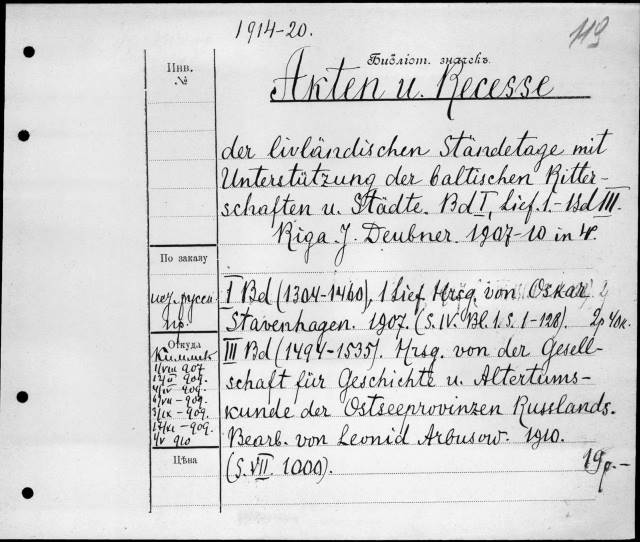 1914-20.
113
Инв. №
Библіот. значекъ.
Akten u. Recesse
der livländischen Ständetage mit
Unterstützung der baltischen Ritter-
schaften u. Städte. Bd I, Lief. 1.- Bd III.
Riga J. Deubner. 1907-10 in 4°.
По заказу
I Bd (1304-1460), 1 Lief. Hrsg. von Oskar
Stavenhagen. 1907. (S. IV. Bl. 1. S. 1-128). 2р 40к.
Откуда
Киммель
III Bd (1494-1535). Hrsg. von der Gesell-
1/VIII 907
12/II 909.
schaft für Geschichte u. Altertums-
4/IV 909.
6/VII - 909.
kunde der Ostseeprovinzen Russlands.
3/IX - 909.
17/XI - 909.
Bearb. von Leonid Arbusow. 1910.
4/V 910
Цѣна
(S. VII. 1000).
19р.-